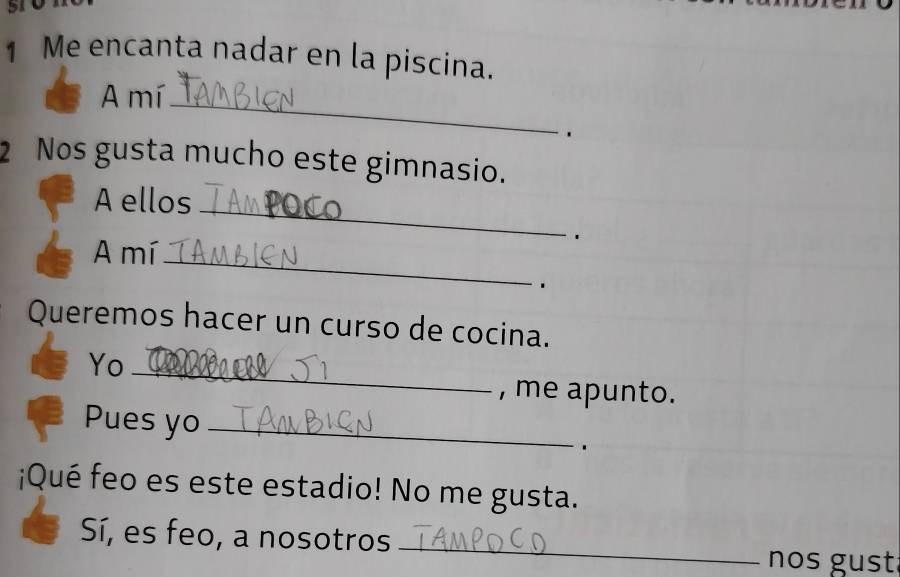 1 Me encanta nadar en la piscina.
A mí TAMBIEN.
2 Nos gusta mucho este gimnasio.
A ellos TAMPOCO.
A mí TAMBIEN.
Queremos hacer un curso de cocina.
Yo SI, me apunto.
Pues yo TAMBIEN.
¡Qué feo es este estadio! No me gusta.
Sí, es feo, a nosotros TAMPOCO nos gusta